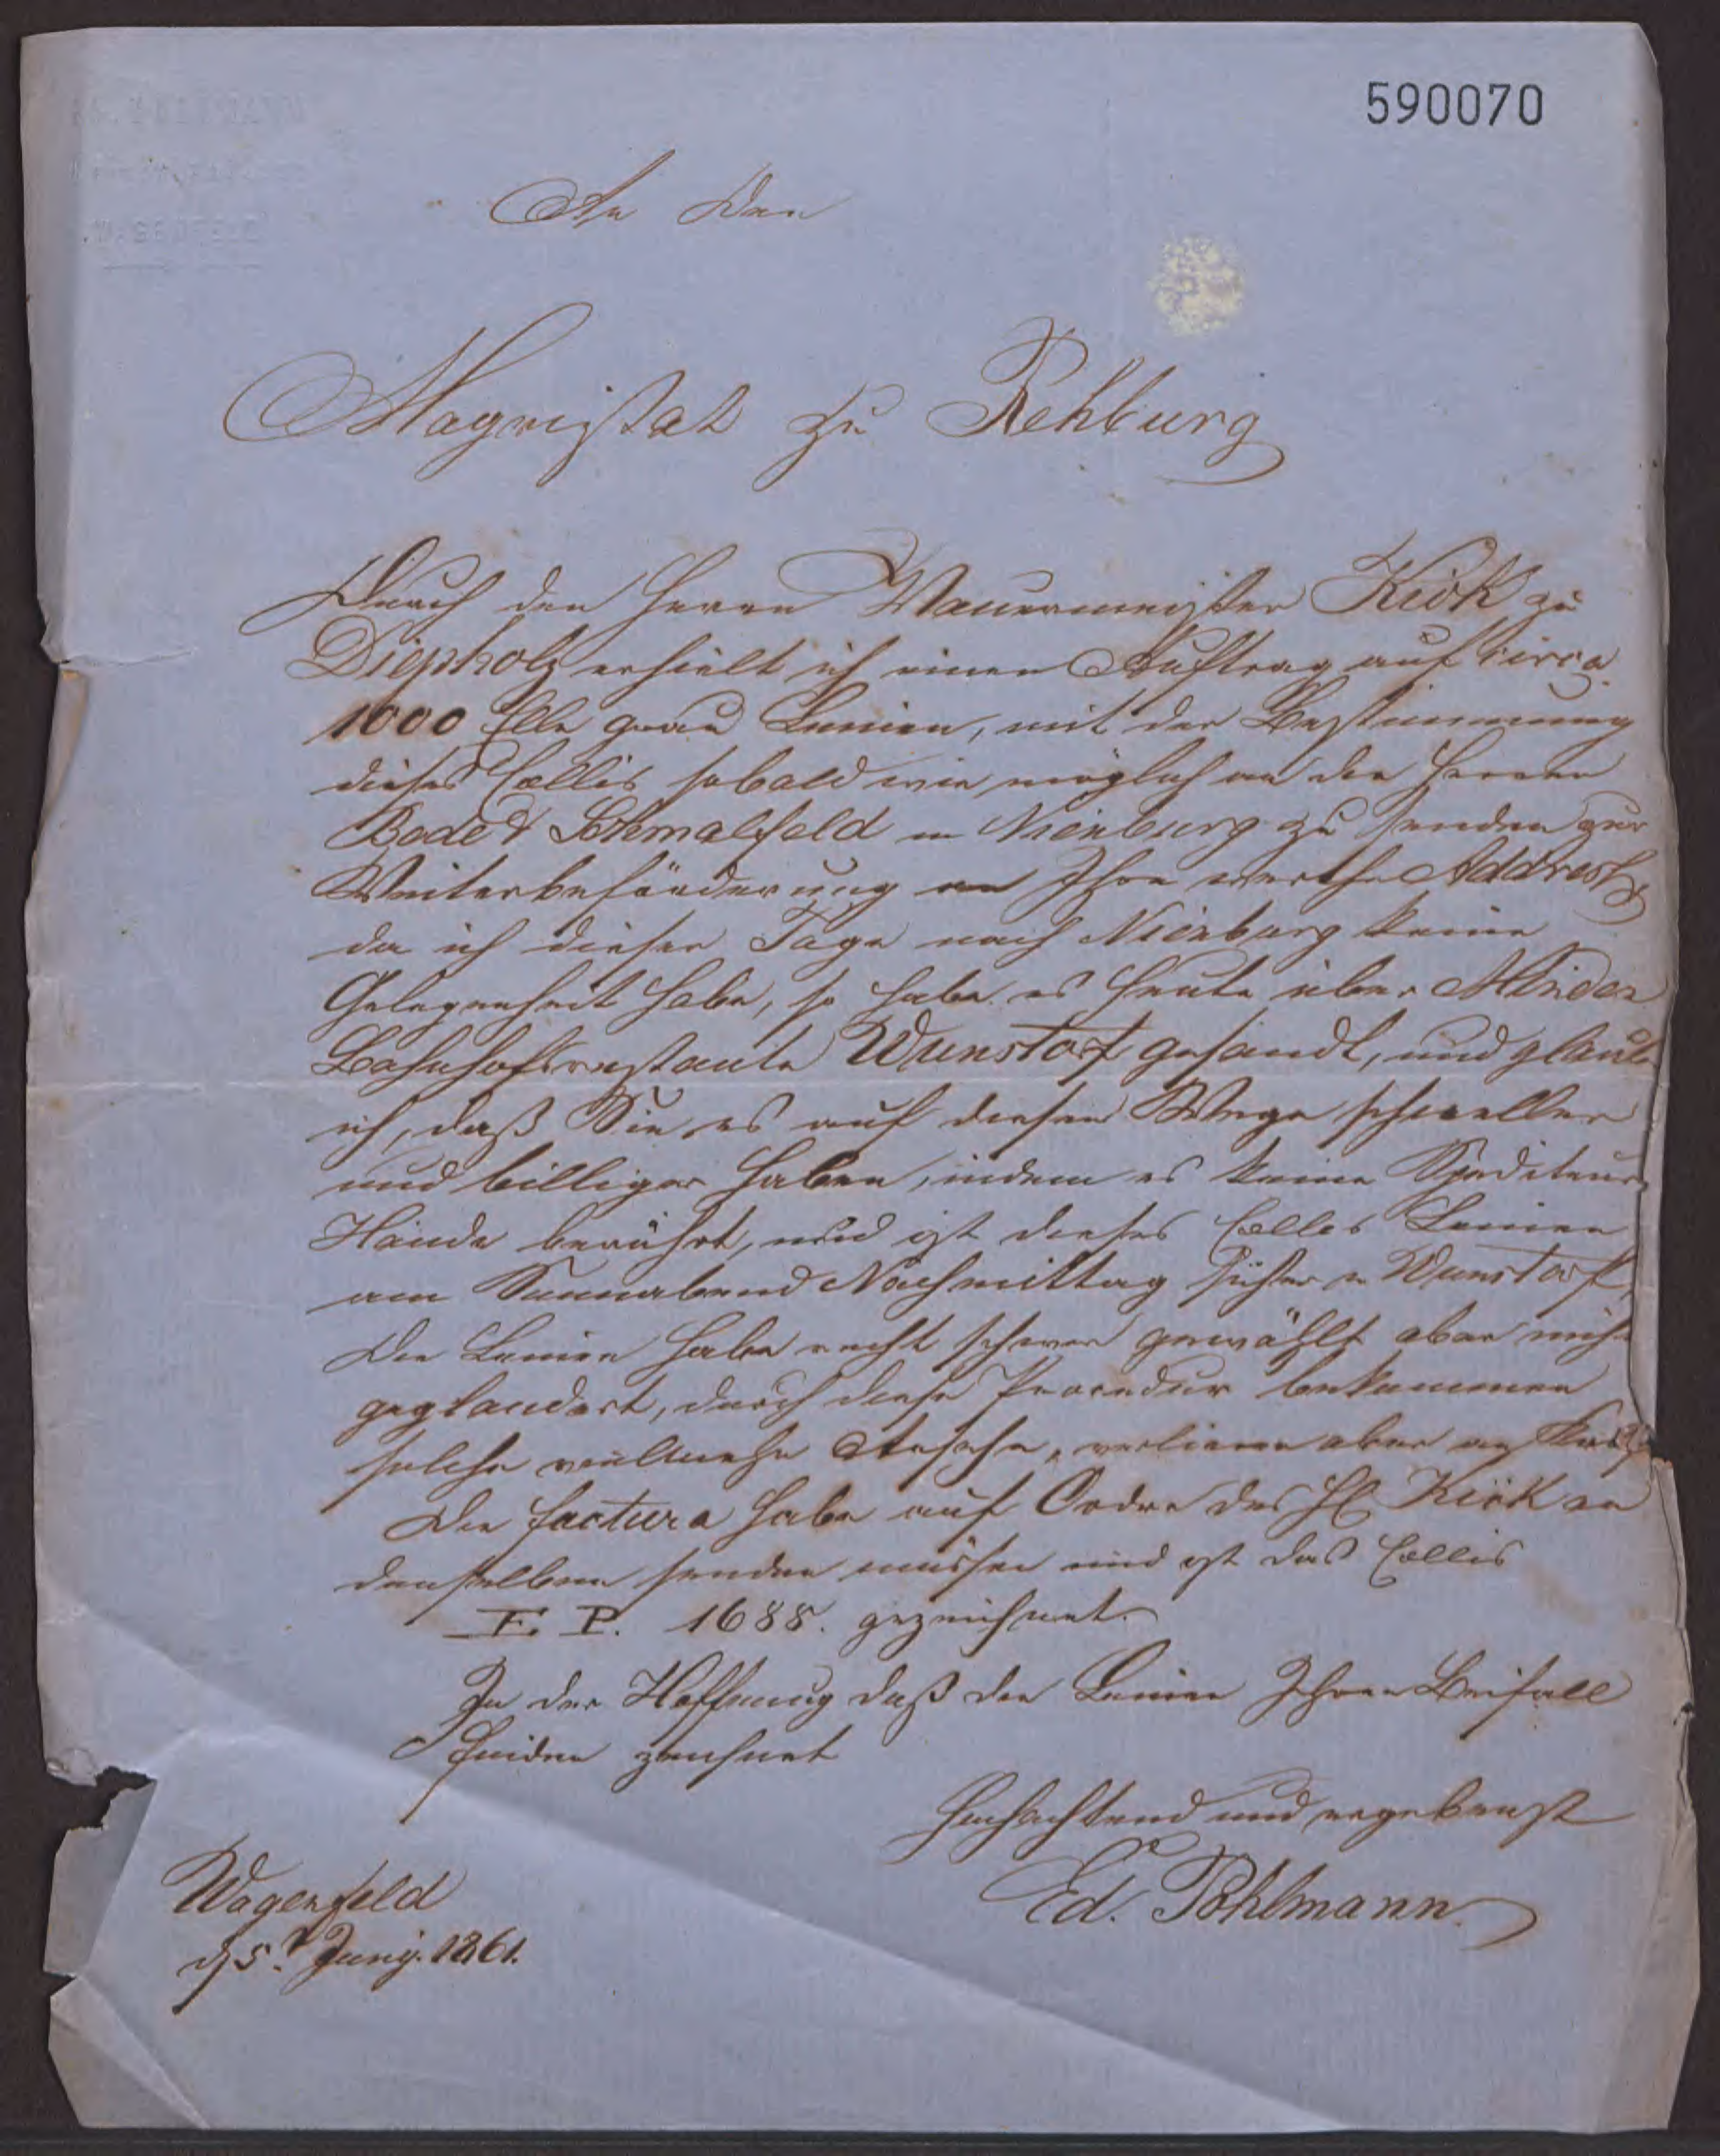 590070
An den
Magistrat zu Rehburg
Durch den Herrn Mauermeister Kiök zu
Diepholz erhielt ich einen Auftrag auf circa
1000 Elle grau Leinen, mit der Bestimmung
dieses Collis sobald wie möglich an die Herren
Bode & Schmalfeld in Nienburg zu senden zur
Weiterbeförderung an Ihre werthe Addresse
da ich dieser Tage nach Nienburg keine
Gelegenheit habe, so habe es heute über Minden
Bahnhofsrestante Wunstorf gesandt, und glaube
ich, daß Sie es auf diesem Wege schneller
und billiger haben, indem es keine Spediteur
Hände berührt, und ist dieses Collis Leinen
am Sonnabend Nachmittag sicher in Wunstorf,
Die Leinen habe recht schwer gewählt aber nicht
geglandert, durch diese Procedur bekommen
solche vielmehr Ansehn, verlieren aber an
Die factura habe auf Ordre des H. Kiök an
denselben senden müssen und ist das Collis
E. P. 1688. gezeichnet.
In der Hoffnung daß die Leinen Ihren Beifall
finden zeichnet
Hochachtend und ergebenst
Ed. Pohlmann
Wagenfeld
d 5t Junij. 1861.